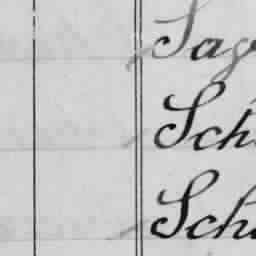 Sag
Sch
Sch